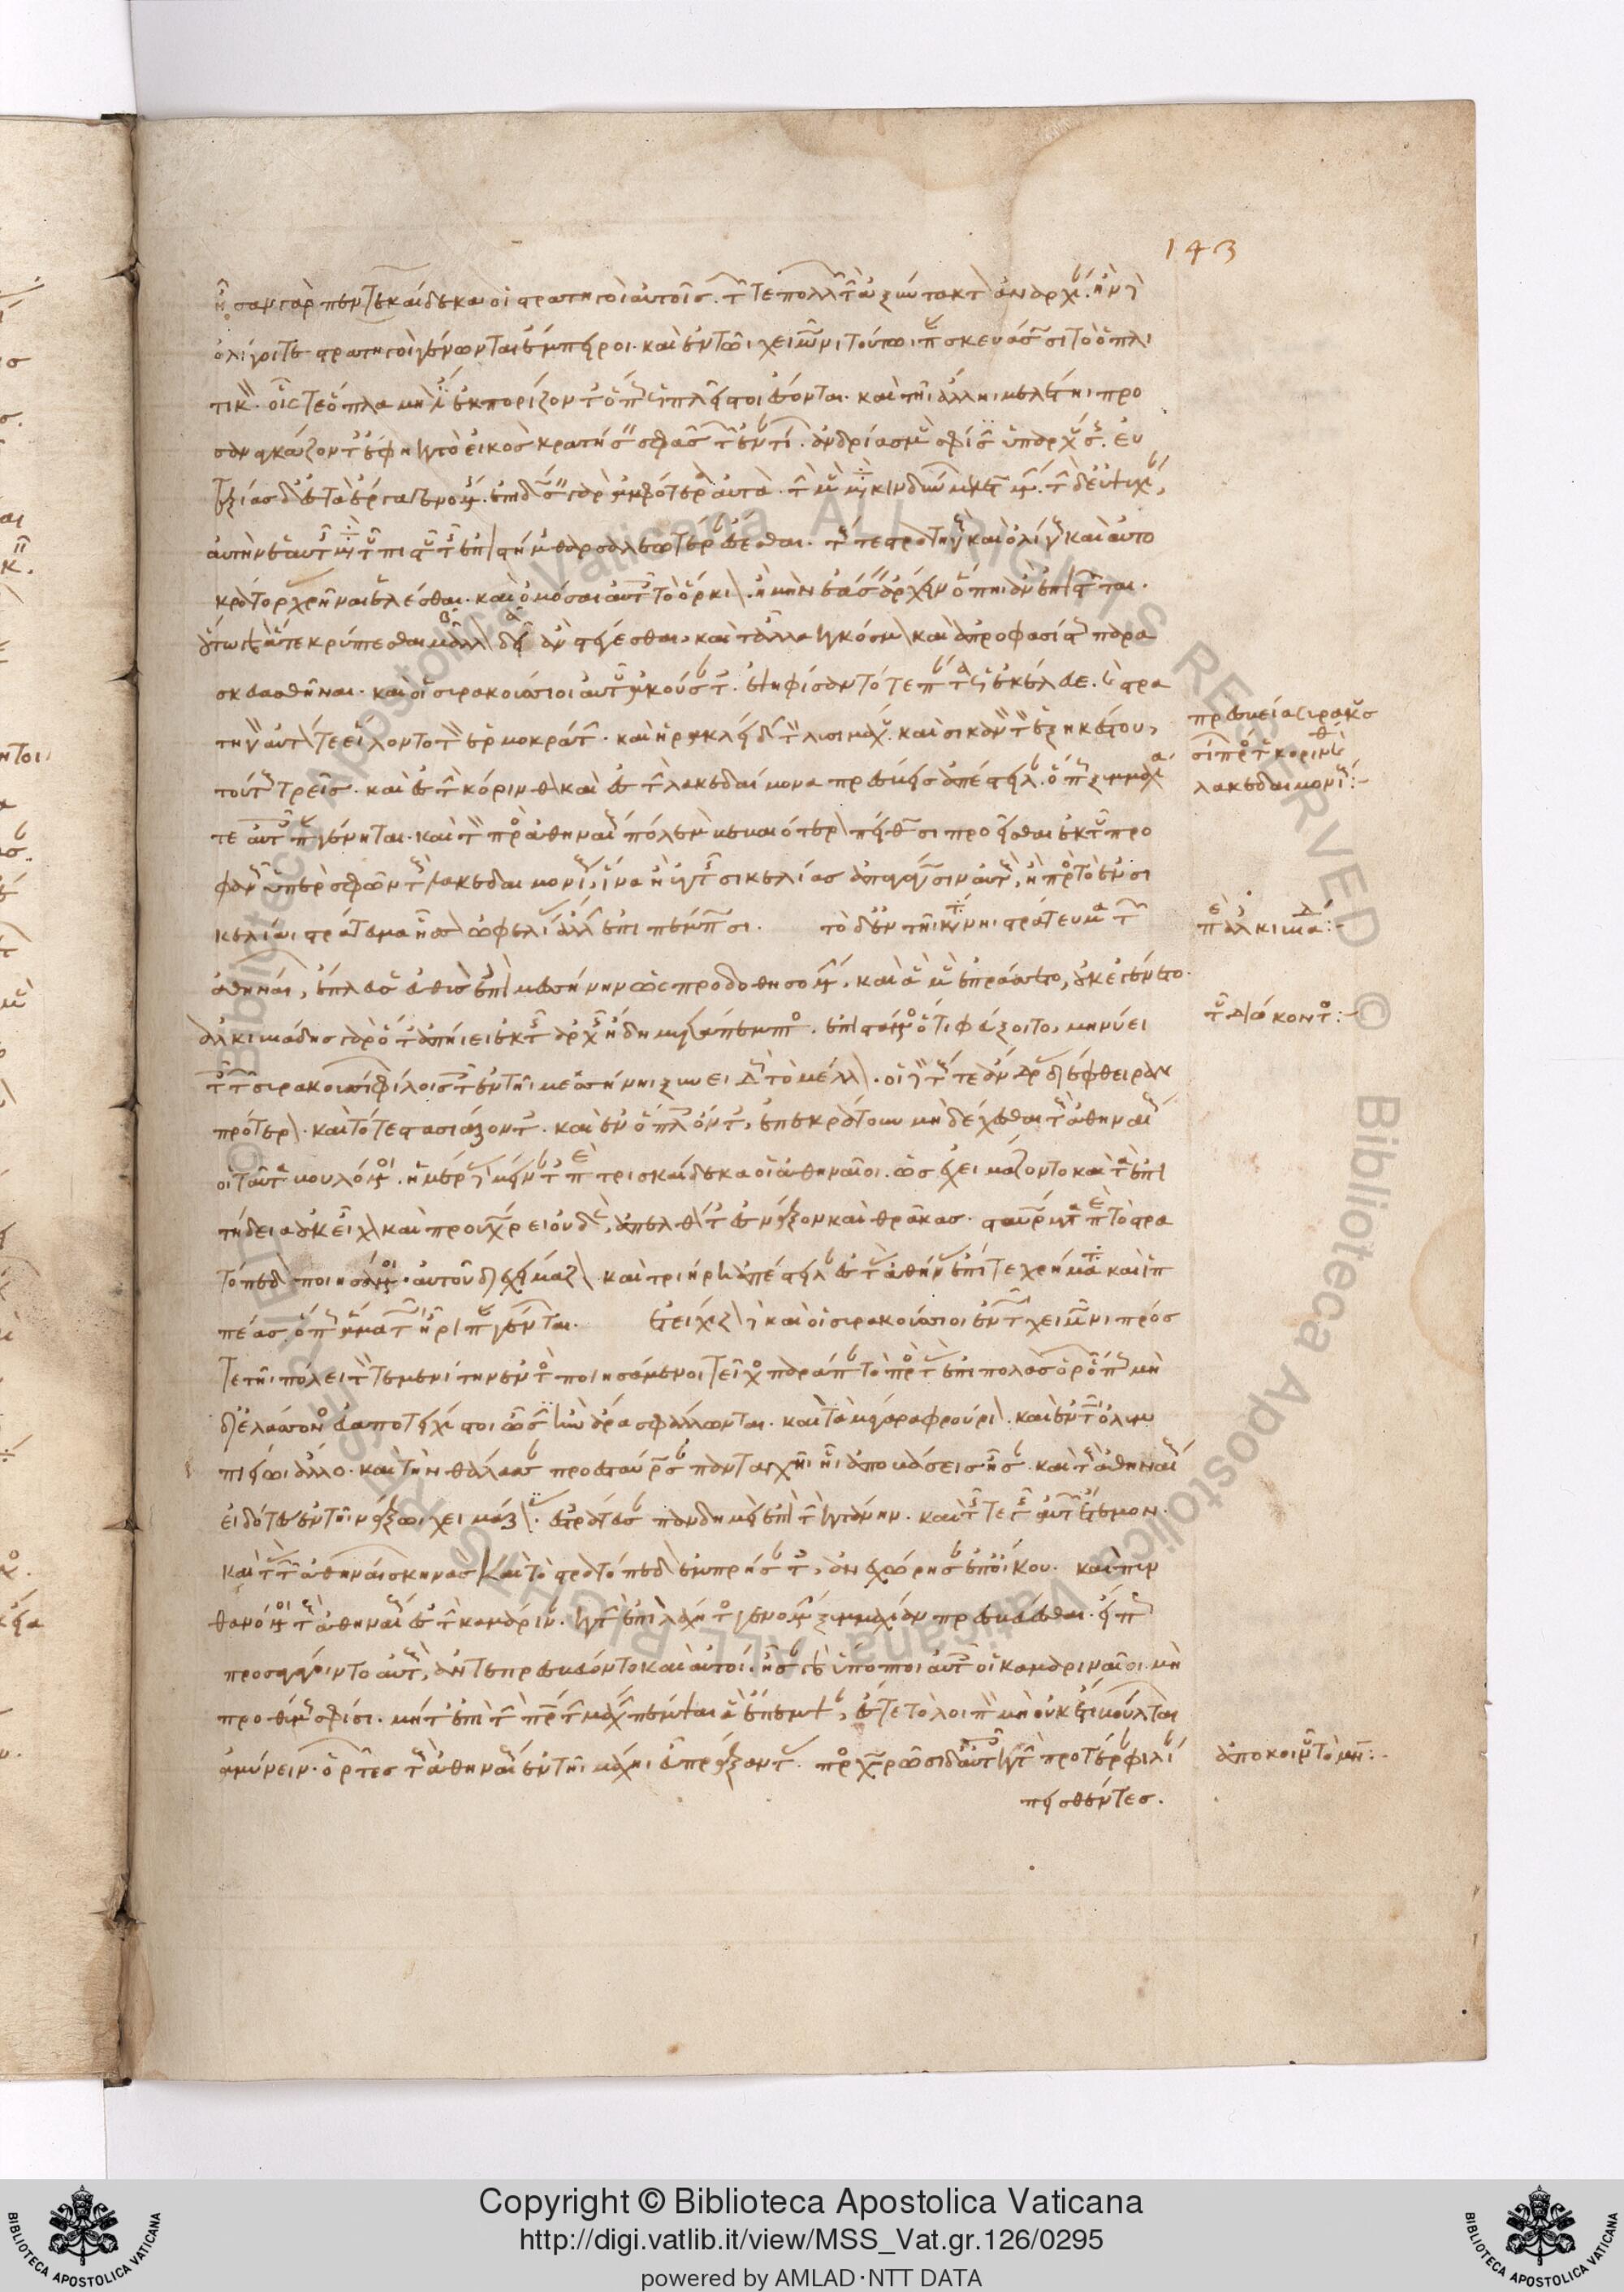 ἦσαν γὰρ πεντεκαίδεκα οἱ στρατηγοὶ αὐτοῖς. τῶν τε πολλῶν τὴν ἀξύντακτον ἀναρχίαν. ἢν δὲ
ὀλίγοι τε στρατηγοὶ γένωνται ἔμπειροι. καὶ ἐν τῶι χειμῶνι τούτωι παρασκευάσωσι τὸ ὁπλι
τικόν. οἷς τε ὅπλα μὴ ἔστιν ἐκπορίζοντες ὅπως ὡς πλεῖστοι ἔσονται. καὶ τῆι ἄλληι μελέτηι προ
σαναγκάζοντες ἔφη κατὰ τὸ εἰκὸς κρατήσειν σφᾶς τῶν ἐναντίων. ἀνδρίας μὲν σφίσιν ὑπαρχούσης. εὐ
ταξίας δ' ἐς τὰ ἔργα γενομένης. ἐπιδώσειν γὰρ ἀμφότερα αὐτὰ. τὴν μὲν μετὰ κινδύνων μελετωμένην. τὴν δ' εὐψυχίαν,
αὐτὴν ἑαυτῆς μετὰ τοῦ πιστοῦ τῆς ἐπιστήμης θαρσαλεωτέραν ἔσεσθαι. τούς τε στρατηγοὺς καὶ ὀλίγους καὶ αὐτο
κράτορας χρῆναι ἑλέσθαι. καὶ ὀμόσαι αὐτοῖς τὸ ὅρκιον. ἦ μὴν ἐάσειν ἄρχειν ὅπηι ἂν ἐπίστωνται.
οὕτω γὰρ ἅ τε κρύπτεσθαι μᾶλλον δεῖ ἂν στέγεσθαι. καὶ τἆλλα κατὰ κόσμον καὶ ἀπροφασίστως παρα
σκευασθῆναι. καὶ οἱ συρακούσιοι αὐτοῦ ἀκούσαντες. ἐψηφίσαντό τε πάντα ὡς ἐκέλευε. καὶ στρα
τηγὸν αὐτόν τε εἵλοντο τὸν ἑρμοκράτην. καὶ ἡρακλείδην τὸν λυσιμάχου. καὶ σικανὸν τὸν ἐξηκέστου,
τούτους τρεῖς. καὶ ἐς τὴν κόρινθον καὶ ἐς τὴν λακεδαίμονα πρέσβεις ἀπέστειλαν. ὅπως ξυμμαχία
τε αὐτοῖς παραγένηται. καὶ τὸν πρὸς ἀθηναίους πόλεμον βεβαιότερον πείθωσι προσθέσθαι ἐκ τοῦ προ
φανοῦς ὑπὲρ σφῶν τοὺς λακεδαιμονίους, ἵνα ἢ ἀπὸ τῆς σικελίας ἀπαγάγωσιν αὐτούς, ἢ πρὸς τὸ ἐν σι
κελίαι στράτευμα ἧσσον ὠφελίαν ἄλλην ἐπιπέμπωσι. τὸ δ' ἐν τῆι κατάνηι στράτευμα τῶν
ἀθηναίων, ἔπλευσεν εὐθὺς ἐπὶ μεσήνην ὡς προδοθησομένην. καὶ ἃ μὲν ἐπράσσετο, οὐκ ἐγένετο.
ἀλκιβιάδης γὰρ ὅτ' ἀπήιει ἐκ τῆς ἀρχῆς ἤδη μετάπεμπτος. ἐπιστάμενος ὅτι φεύξοιτο, μηνύει
τοῖς τῶν συρακουσίων φίλοις τοῖς ἐν τῆι μεσήνηι ξυνειδὼς τὸ μέλλον. οἱ δὲ τούς τε ἄνδρας διέφθειραν
πρότερον. καὶ τότε στασιάζοντες. καὶ ἐν ὅπλοις ὄντες, ἐπεκράτουν μὴ δέχεσθαι τοὺς ἀθηναίους
οἱ ταῦτα βουλόμενοι. ἡμέρας δὲ μείναντες περὶ τρισκαίδεκα οἱ ἀθηναῖοι. ὡς ἐχειμάζοντο καὶ τὰ ἐπι
τήδεια οὐκ εἶχον καὶ προυχώρει οὐδὲν, ἀπελθόντες ἐς νάξον καὶ θρᾶκας. σταύρωμα περὶ τὸ στρα
τόπεδον ποιησάμενοι. αὐτοῦ διεχείμαζον καὶ τριήρη ἀπέστειλαν ἐς τὰς ἀθήνας ἐπί τε χρήματα καὶ ἱπ
πέας. ὅπως ἅμα τῶι ἦρι παραγένωνται. ἐτείχιζον δὲ καὶ οἱ συρακούσιοι ἐν τῶι χειμῶνι πρός
τε τῆι πόλει τὸν τεμενίτην ἐντὸς ποιησάμενοι τεῖχος παρὰ πᾶν τὸ πρὸς τὰς ἐπιπολὰς ὁρῶν ὅπως μὴ
δι' ἐλάσσονος εὐαποτείχιστοι ὦσιν ἢν ἄρα σφάλλωνται. καὶ τὰ μέγαρα φρούριον. καὶ ἐν τῶι ὀλυμ
πιείωι ἄλλο. καὶ τὴν θάλασσαν προεσταύρωσαν πανταχῆι ἧι ἀποβάσεις ἦσαν. καὶ τοὺς ἀθηναίους
εἰδότες ἐν τῆι νάξωι χειμάζοντας. ἐστράτευσαν πανδημεὶ ἐπὶ τὴν κατάνην. καὶ τῆς τε γῆς αὐτῶν ἔτεμον.
καὶ τὰς τῶν ἀθηναίων σκηνὰς καὶ τὸ στρατόπεδον ἐμπρήσαντες, ἀνεχώρησαν ἐπ' οἴκου. καὶ πυν
θανόμενοι τοὺς ἀθηναίους ἐς τὴν καμάριναν. κατὰ τὴν ἐπὶ λάχητος γενομένην ξυμμαχίαν πρεσβεύεσθαι. εἴ πως
προσαγάγοιντο αὐτούς, ἀντεπρεσβεύοντο καὶ αὐτοί. ἦσαν γὰρ ὕποπτοι αὐτοῖς οἱ καμαριναῖοι. μὴ
προθύμως σφίσι. μήτ' ἐπὶ τὴν πρώτην μάχην πέμψαι ἃ ἔπεμψαν, ἔς τε τὸ λοιπὸν μὴ οὐκέτι βούλωνται
ἀμύνειν. ὁρῶντες τοὺς ἀθηναίους ἐν τῆι μάχηι εὖ πράξαντας. προσχωρῶσι δ' αὐτοῖς κατὰ τὴν προτέραν φιλίαν
πεισθέντες.
143
πρεσβεία συρακου
σίων πρὸς τοὺς κορινθίους
λακεδαιμονίους:-
περὶ ἀλκιβιάδου:-
ἀποκοιμῶ τὸ μὴν:-
Copyright © Biblioteca Apostolica Vaticana
http://digi.vatlib.it/view/MSS_Vat.gr.126/0295
powered by AMLAD·NTT DATA
BIBLIOTECA APOSTOLICA VATICANA
BIBLIOTECA APOSTOLICA VATICANA